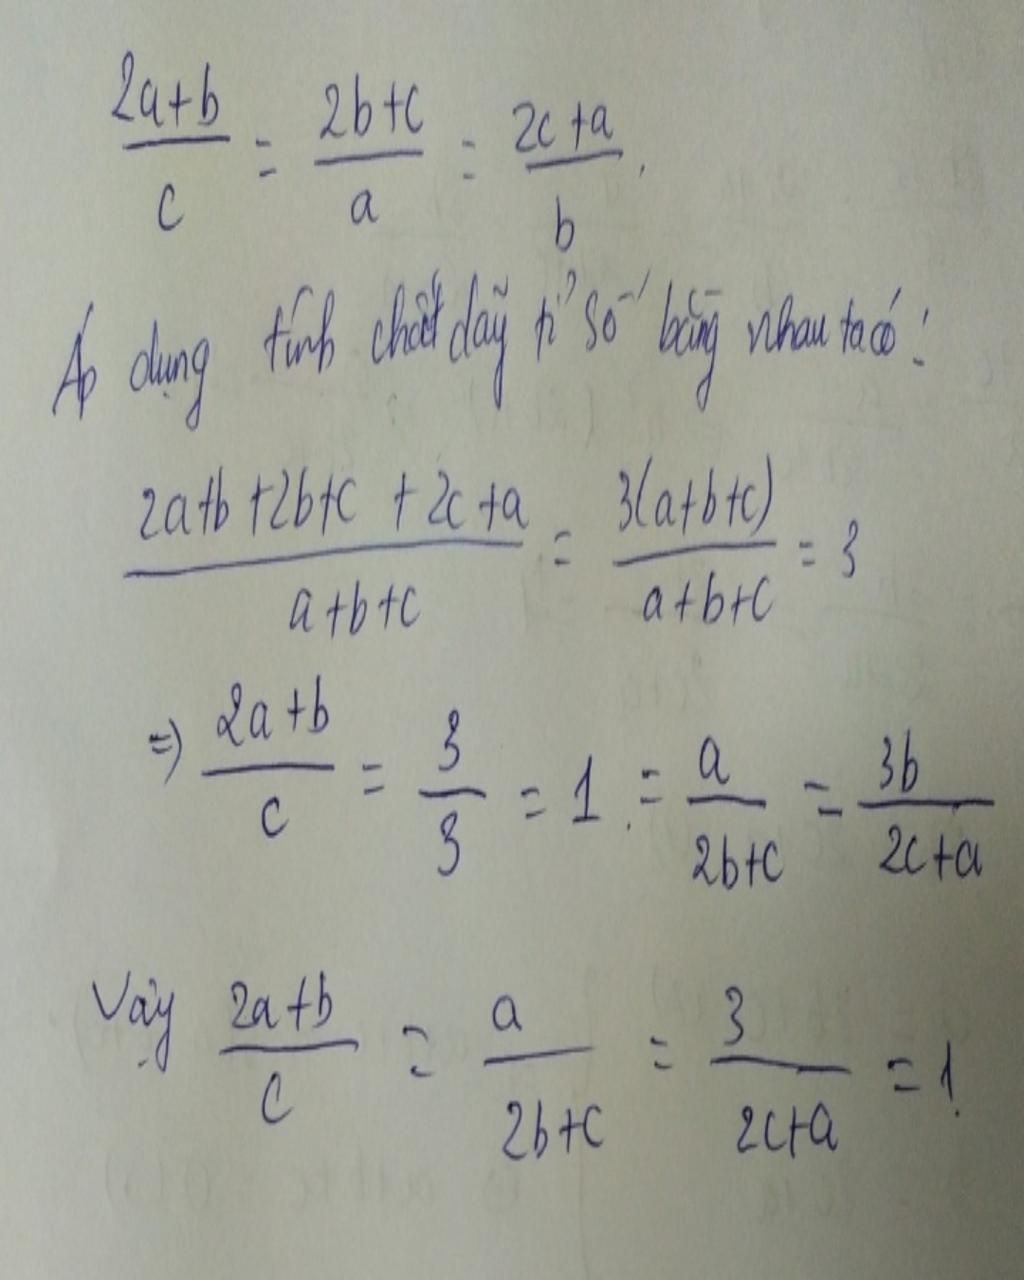 (2a+b)/c = (2b+c)/a = (2c+a)/b.
Áp dụng tính chất dãy tỉ số bằng nhau ta có:
(2a+b+2b+c+2c+a)/(a+b+c) = 3(a+b+c)/(a+b+c) = 3
=> (2a+b)/c = 3/3 = 1 = a/(2b+c) = 3b/(2c+a)
Vậy (2a+b)/c = a/(2b+c) = 3/(2c+a) = 1.